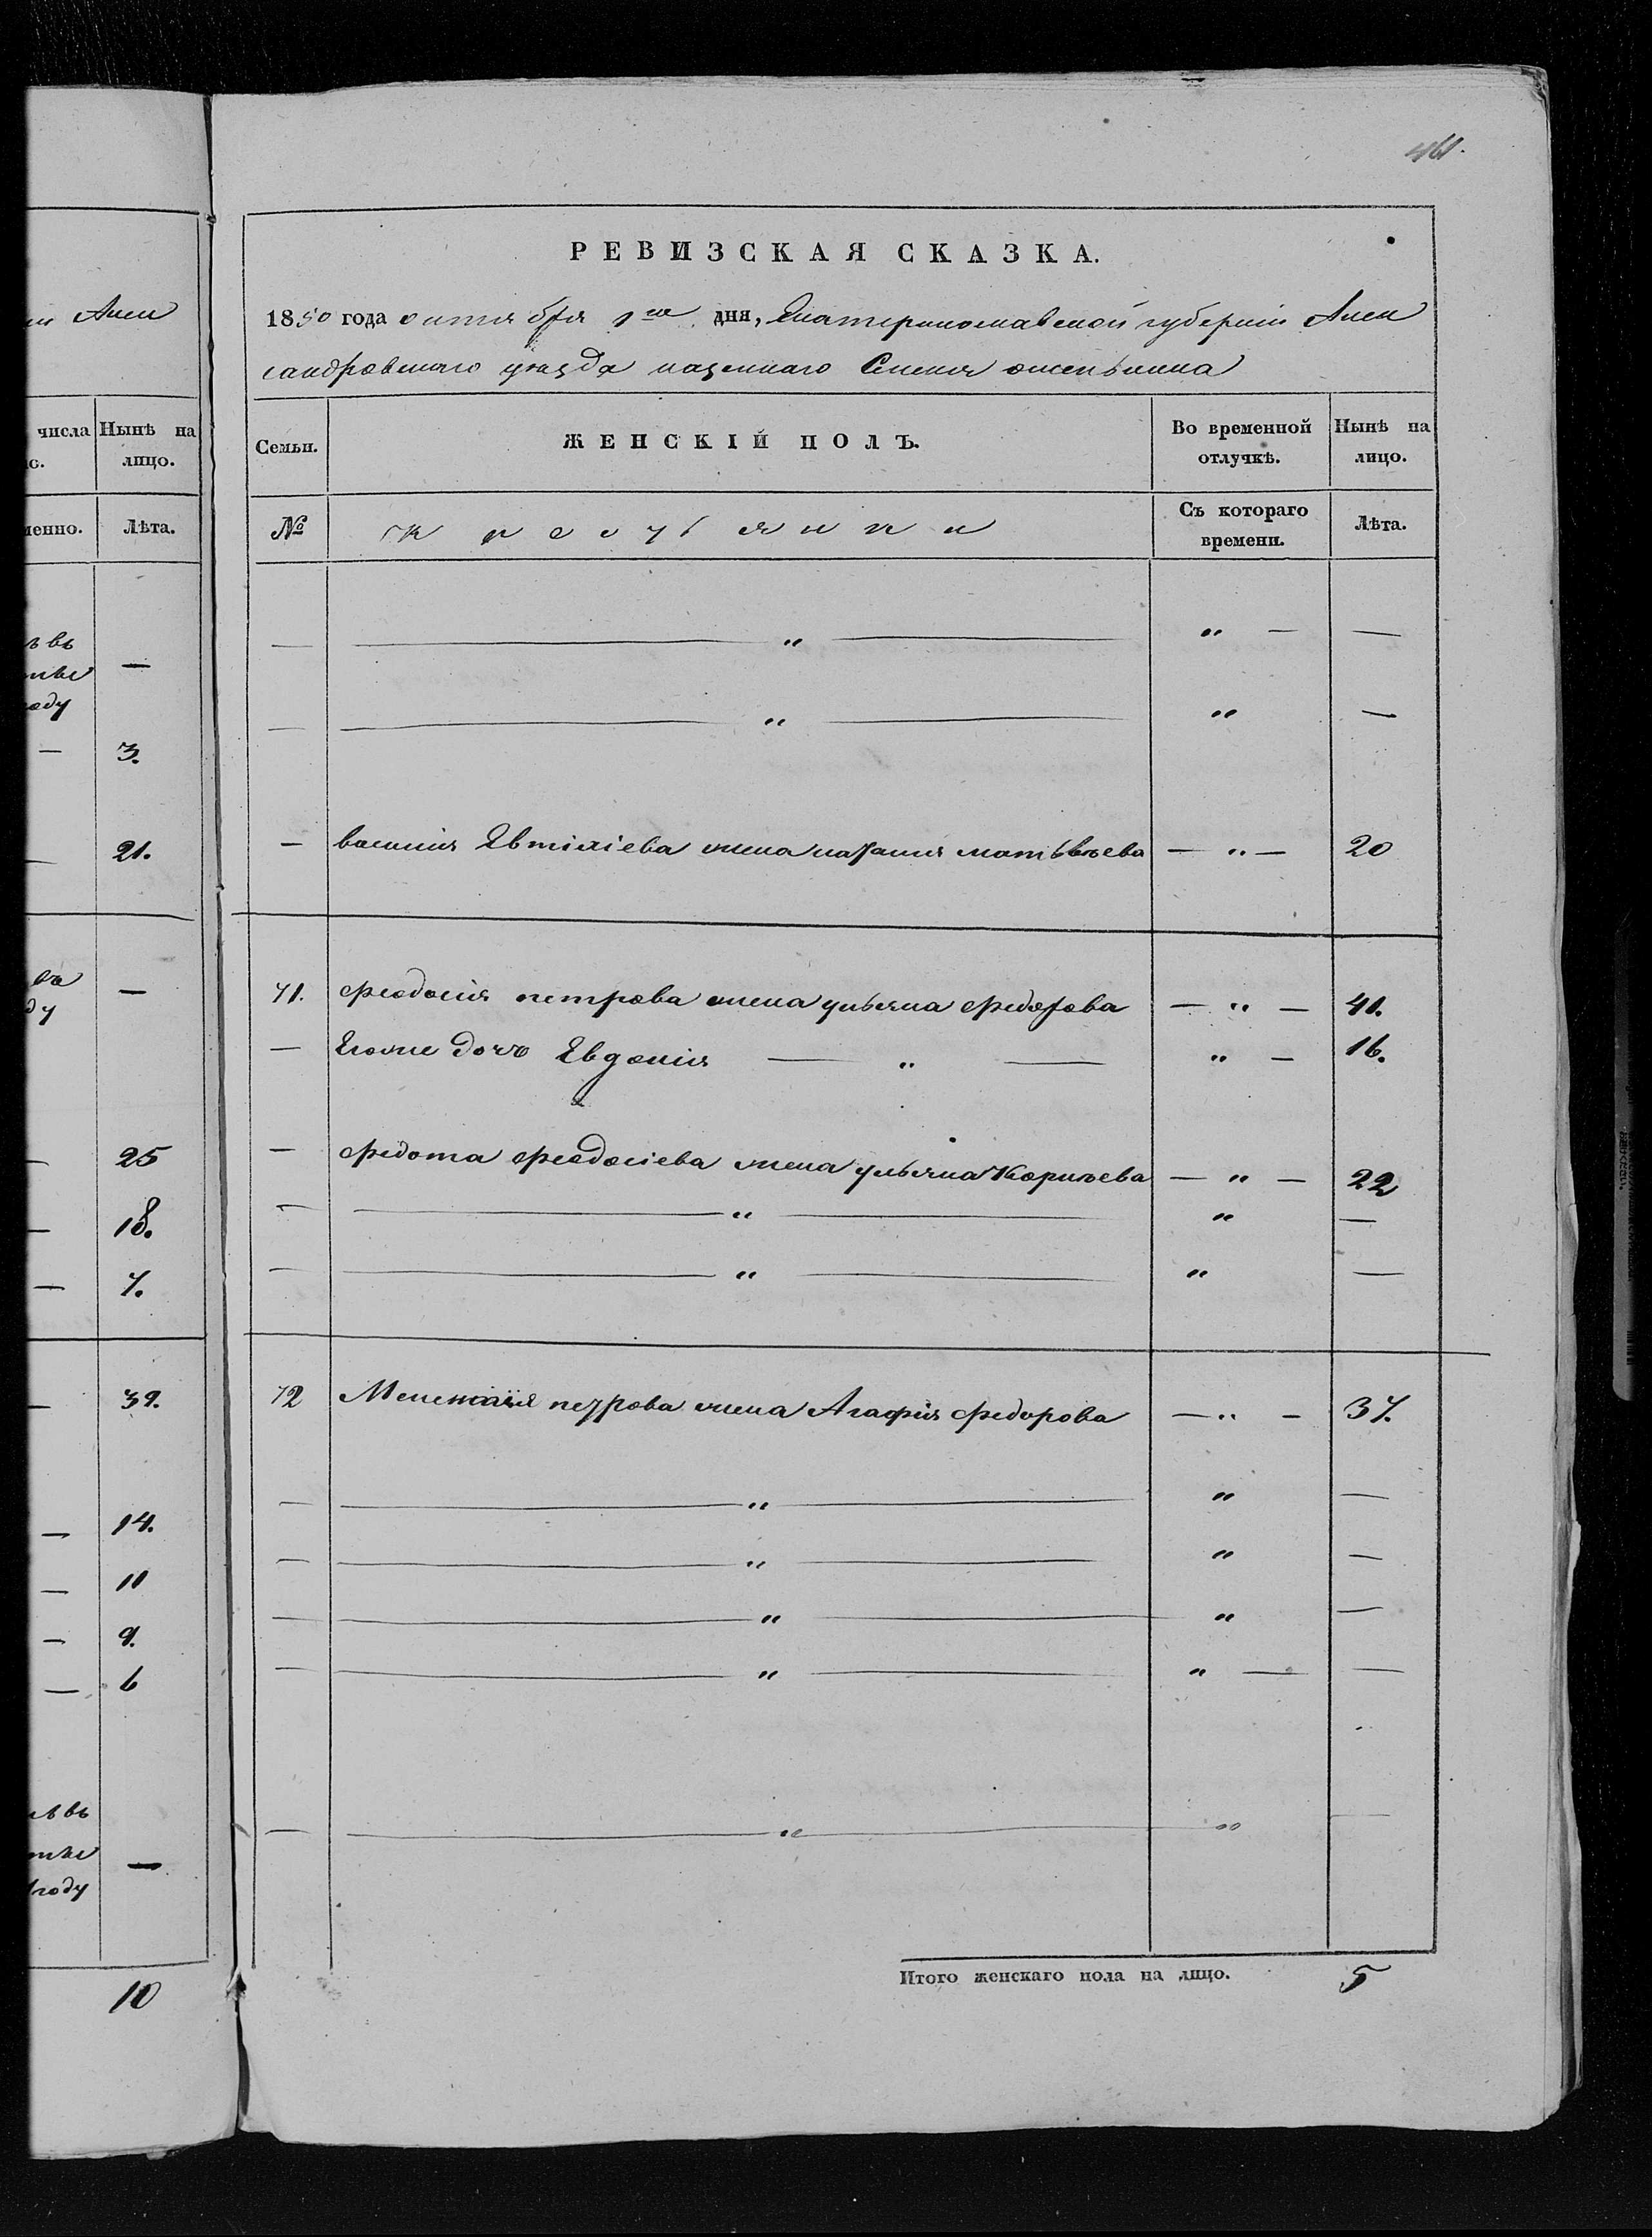 461.
Алек
РЕВИЗСКАЯ СКАЗКА.
1850 года октября 1го дня, Екатеринославской губернии Алек
сандровскаго уезда казеннаго Селения
числа Нынѣ на лицо.
Семьи. ЖЕНСКІЙ ПОЛЪ. Во временной отлучкѣ. Нынѣ на лицо.
менно. Лѣта.
№ Крестьянки Съ котораго времени. Лѣта.
— — „ — „ — —
— — „ — „ —
— Василия Евтихіева жена Наталия Матвѣева — „ — 20
71. Феодосия Петрова жена Ульяна Федорова — „ — 41.
— Егоже дочь Евдокия — „ — „ — 16.
— Федота Феодосіева жена Ульяна Корнѣева — „ — 22
— — „ — „ —
— — „ — „ —
72 петрова жена Агафия Федорова — „ — 37.
— — „ — „ —
— — „ — „ —
— — „ — „ —
— — „ — „ — —
— — „ — „ —
Итого женскаго пола на лицо. 5
въ
году
—
— 3.
— 21.
ду —
— 25
— 18.
— 7.
— 39.
— 14.
— 11
— 9.
— 6
въ
году
—
10